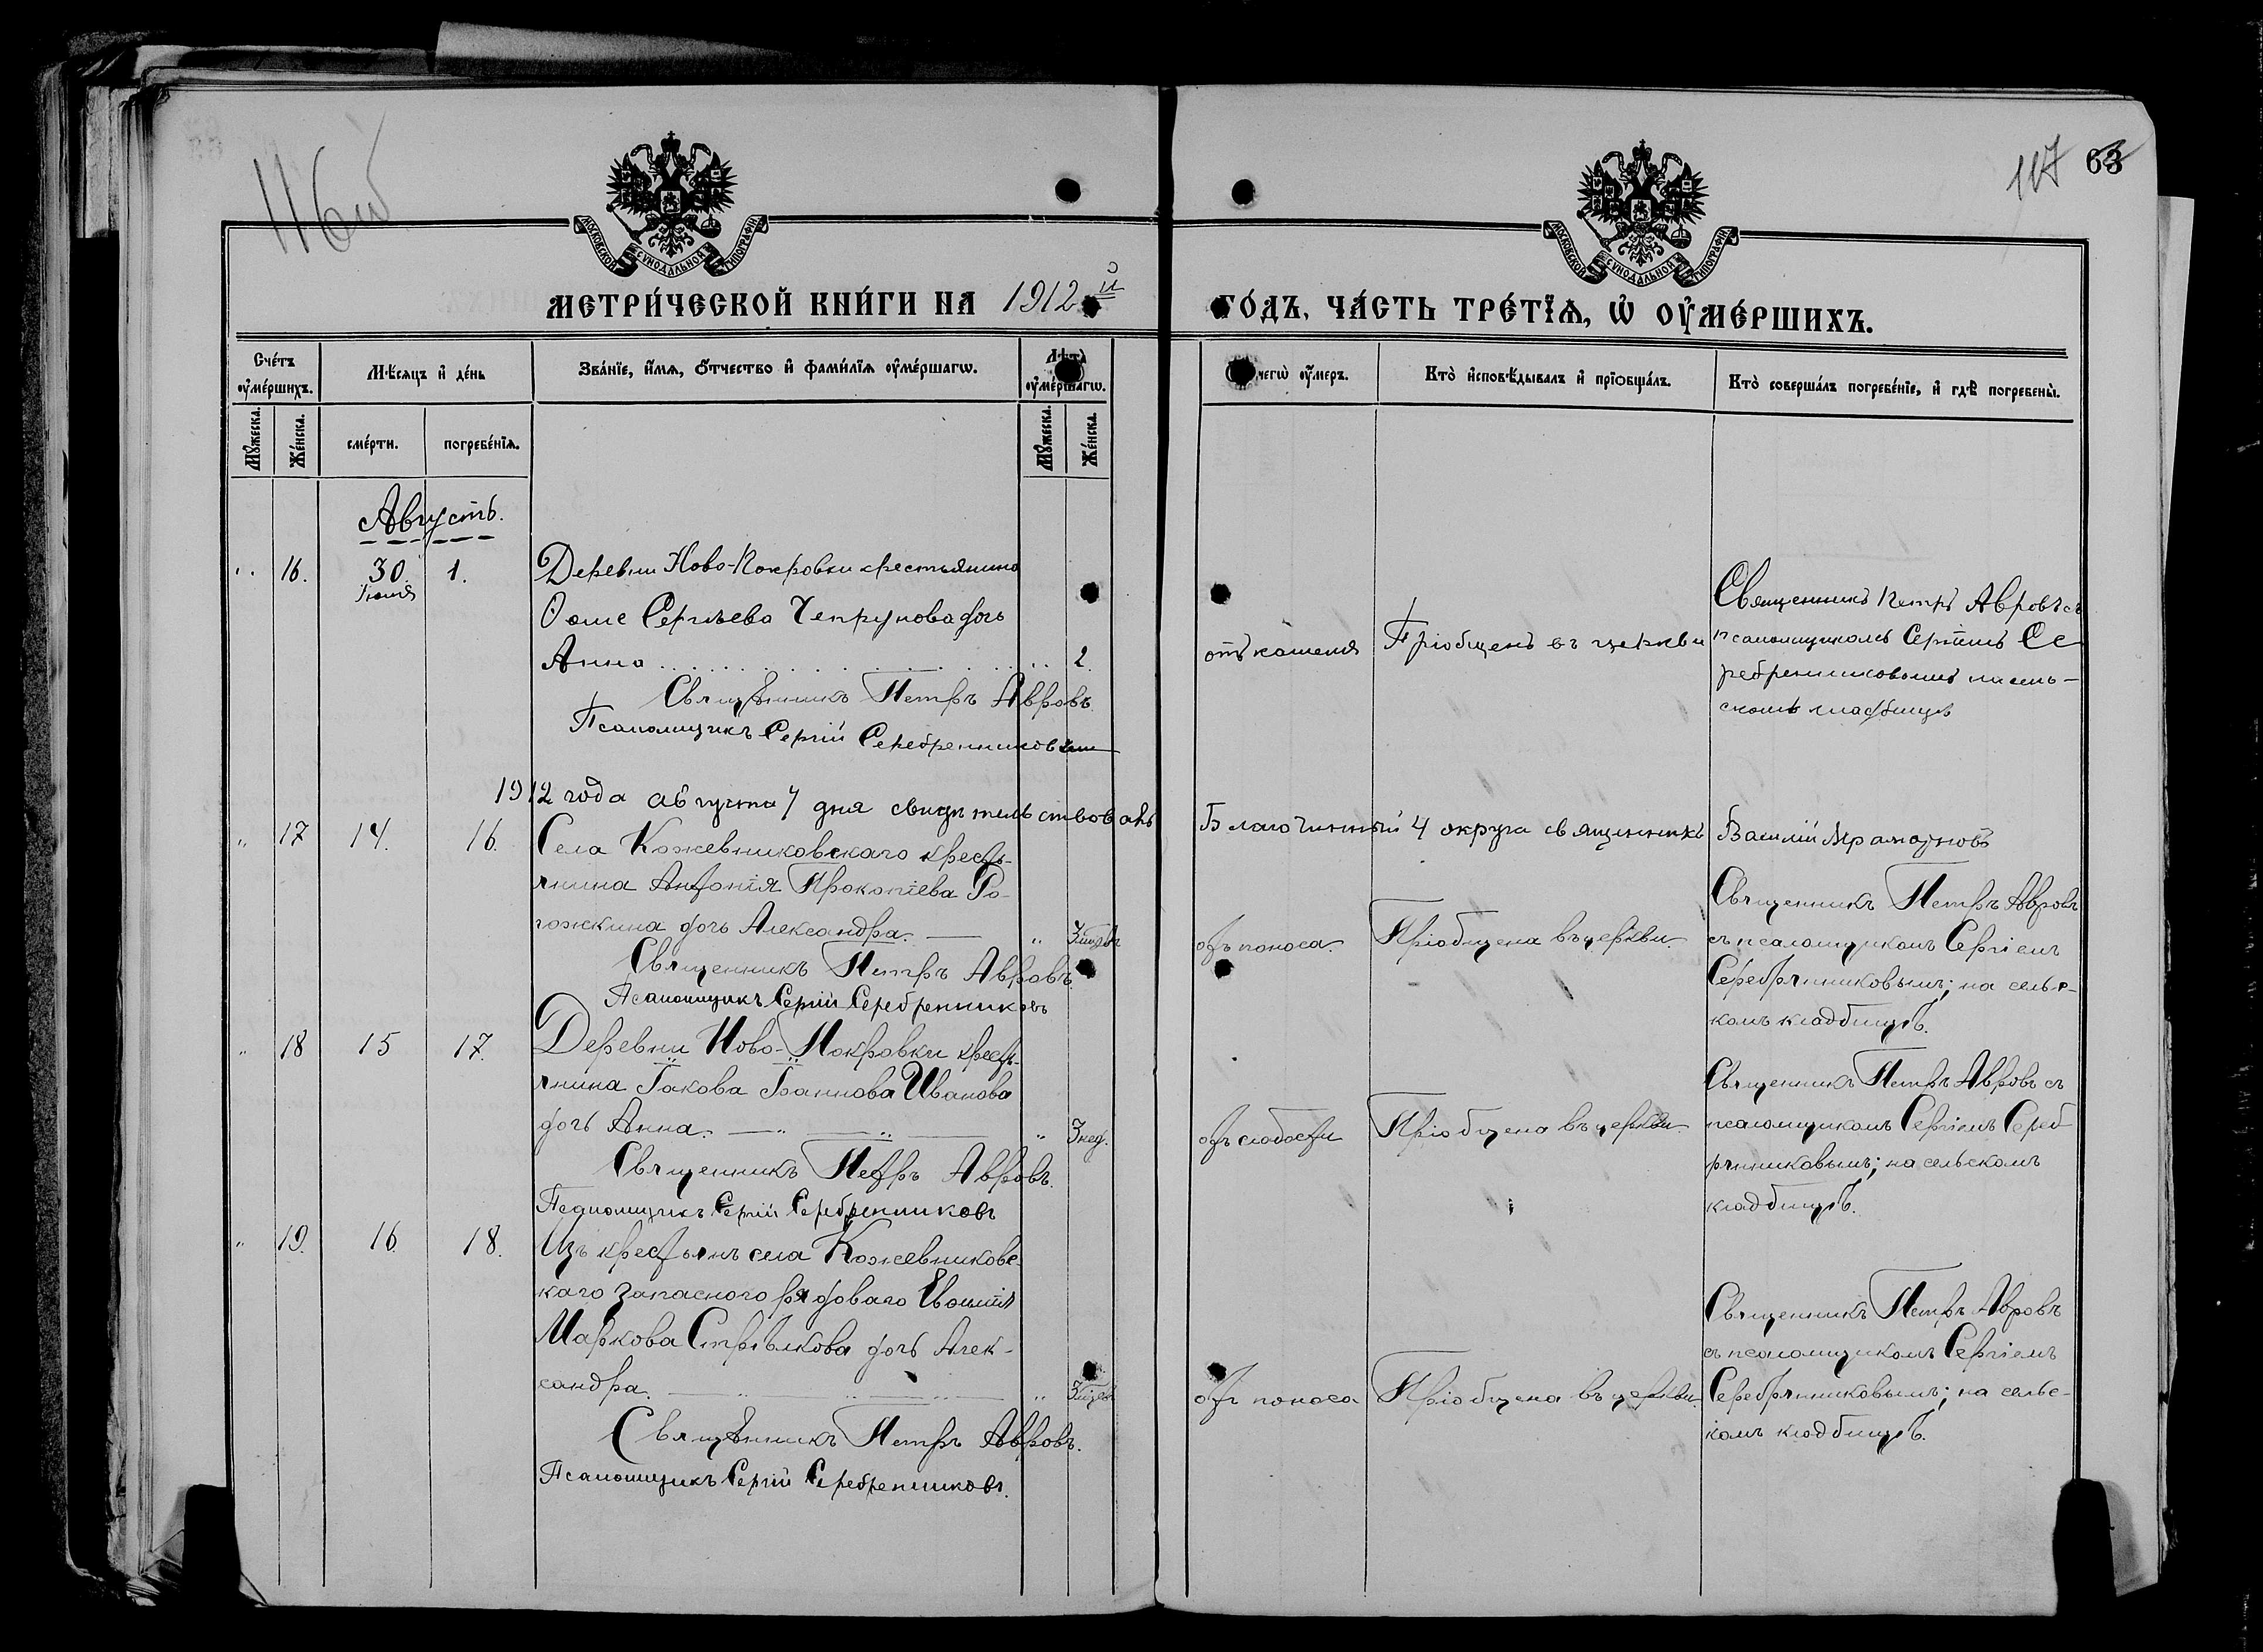 116об
117 63
МОСКОВСКОЙ СУНОДАЛЬНОЙ ТИПОГРАФІИ
МОСКОВСКОЙ СУНОДАЛЬНОЙ ТИПОГРАФІИ
МЕТРИ́ЧЕСКОЙ КНИ́ГИ НА 1912й ГО́ДЪ, ЧА́СТЬ ТРЕ́ТЇѦ, Ѡ҆ ОУ҆МЕ́РШИХЪ.
Сче́тъ оу҆ме́ршихъ.
Мꙋ́жеска.
Же́нска.
Мѣ́сяцъ и҆ де́нь
сме́рти.
погребе́нїѧ.
Зва́нїе, и҆́мѧ, ѻ҆́тчество и҆ фами́лїѧ оу҆ме́ршагѡ.
Лѣ̀та оу҆ме́ршагѡ.
Мꙋ́жеска.
Же́нска.
чегѡ̀ оу҆́меръ.
Кто̀ и҆сповѣ́дывалъ и҆ прїѻбща́лъ.
Кто̀ соверша́лъ погребе́нїе, и҆ гдѣ̀ погребены̀.
Августъ.
" 16. 30. Іюля 1.
Деревни Ново-Покровки крестьянина
Ѳоме Сергѣева Чепрунова дочь
Анна 2.
Священникъ Петръ Авровъ
Псаломщикъ Сергій Серебренниковъ
отъ кашеля
Пріобщенъ въ церкви
Священникъ Петръ Авровъ съ
псаломщикомъ Сергіемъ Се
ребренниковымъ на сель-
скомъ кладбищѣ
1912 года августа 7 дня свидѣтельствовалъ Благочинный 4 округа священникъ Василій
" 17 14. 16.
Села Кожевниковскаго кресть-
янина Антонія Прокопіева Ро-
гожкина дочь Александра. " 3 мѣсяц
Священникъ Петръ Авровъ.
Псаломщикъ Сергій Серебренниковъ
отъ поноса.
Пріобщена въ церкви.
Священникъ Петръ Авровъ
съ псаломщикомъ Сергіемъ
Серебрянниковымъ; на сельс-
комъ кладбищѣ.
" 18 15 17.
Деревни Ново-Покровки кресть-
янина Іакова Іоаннова Иванова
дочь Анна. " 3 нед.
Священникъ Петръ Авровъ.
Псаломщикъ Сергій Серебренниковъ
отъ слабости
Пріобщена въ церкви.
Священникъ Петръ Авровъ съ
псаломщикомъ Сергіемъ Сереб
рянниковымъ; на сельскомъ
кладбищѣ.
" 19. 16. 18.
Изъ крестьянъ села Кожевниковс-
каго запаснаго рядоваго
Маркова Стрѣлкова дочь Алек-
сандра. " 3 мѣсяц
Священникъ Петръ Авровъ.
Псаломщикъ Сергій Серебренниковъ.
отъ поноса
Пріобщена въ церкви.
Священникъ Петръ Авровъ
съ псаломщикомъ Сергіемъ
Серебрянниковымъ; на сельс-
комъ кладбищѣ.